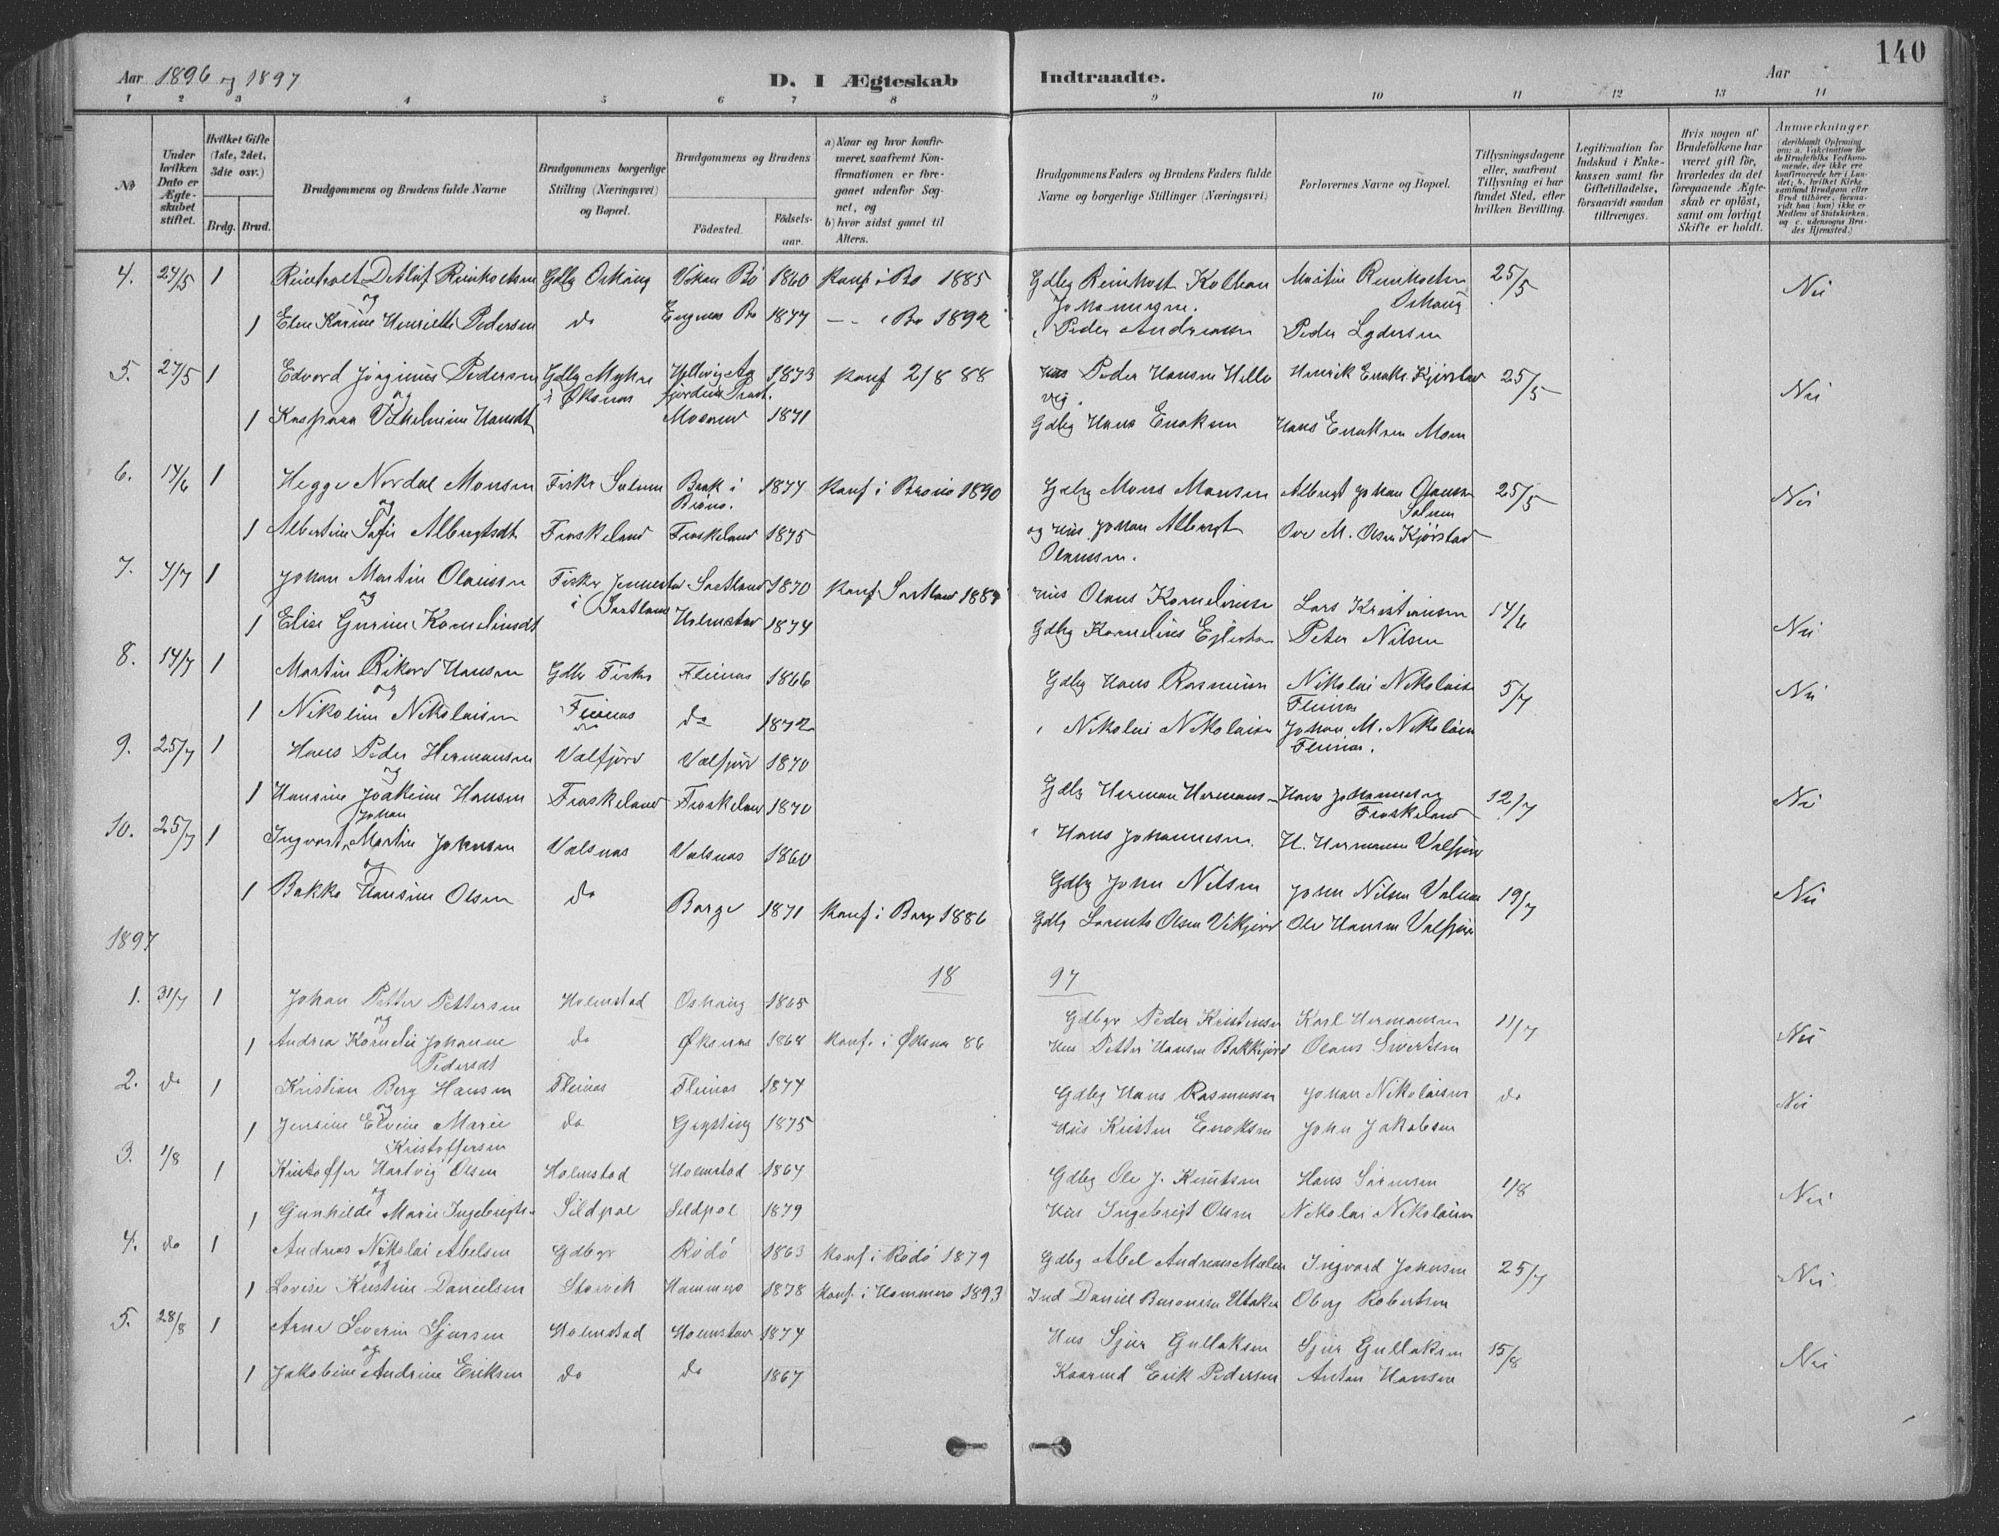 140
Aar 1896 og 1897
D. I Ægteskab Indtraadte.
Aar
1 2 3 4 5 6 7 8 9 10 11 12 13 14
No
Under hvilken Dato er Ægteskabet stiftet.
Hvilket Gifte (1ste, 2det, 3die osv.)
Brdg. Brud.
Brudgommens og Brudens fulde Navne
Brudgommens borgerlige Stilling (Næringsvei) og Bopæl.
Brudgommens og Brudens
Födested. Födselsaar.
a) Naar og hvor konfirmeret, saafremt Konfirmationen er foregaaet udenfor Sognet, og
b) hvor sidst gaaet til Alters.
Brudgommens Faders og Brudens Faders fulde Navne og borgerlige Stillinger (Næringsvei)
Forlovernes Navne og Bopæl.
Tillysningsdagene eller, saafremt Tillysning ei har fundet Sted, efter hvilken Bevilling.
Legitimation for Indskud i Enkekassen samt for Giftetilladelse, forsaavidt saadan tiltrænges.
Hvis nogen af Brudefolkene har været gift för, hvorledes da det foregaaende Ægteskab er oplöst, samt om lovligt Skifte er holdt.
Anmærkninger
4. 27/5 1 Reinholt Detlef Reinholtsen Gdbg Oshaug Vikan Bö 1860 Konf i Bö 1885 Gdbg Reinholt Kolban Martin Reinholtsen 25/5 Nei
og Johannesen. Oshaug
1 Eline Karine Henriette Pedersen do Engnes Bö 1877 — i Bö 1892 Peder Andreassen Peder Lydersen
5. 27/5 1 Edvard Jörginus Pedersen Gdbg Myhre 1873 Konf 2/8 88 Hus Peder Hansen Hellevig. Henrik Enoks Kjörstad 25/5 Nei
og i Öksnes
1 Kaspara Vilhelmine Hansdt 1871 Gdbg Hans Enoksen Hans Enoksen Moen
6. 14/6 1 Hegge Nordal Monsen Fisker Solum Bönö. 1877 Konf i Brönö 1890 Gdbg Mons Monsen Albregt Johan Olaussen 25/5 Nei
og Solum
1 Albertine Sofie Albregtsdt Froskeland Froskeland 1875 og Hus Johan Albregt Olaussen. Ove M. Olsen Kjörstad
7. 4/7 1 Johan Martin Olaussen Fisker Jennestad i Sortland Sortland 1870 Konf Sortland 188 Hus Olaus Kornelius Lars Kristiansen 14/6 Nei
og
1 Elise Gurine Kornelinsdt Holmstad 1874 Gdbg Kornelius Ejlertsen Peter Nilsen
8. 14/7 1 Martin Rikard Hansen Gdbr Fisker Fleines 1866 Gdbg Hans Rasmusen Nikolai Nikolaisen 5/7 Nei
og Fleines
1 Nikoline Nikolaisen Fleines do 1872 Nikolai Nikolaisen Johan M. Nikolaisen
do Fleines.
9. 25/7 1 Hans Peder Hermansen Valfjord Valfjord 1870 Gdbg Herman Hermans Hans Johannesen 12/7 Nei
og Froskeland
1 Hansine Joakime Hansen Froskeland Froskeland 1870 Hans Johannesen. H. Hermansen Valfjord
Johan
10. 25/7 1 Ingvart Martin Johnsen Valsnes Valsnes 1860 Gdbg John Nilsen John Nilsen Valsnes 19/7 Nei
og
1 Bokka Hansine Olsen do Borge 1871 Konf i Borge 1886 Gdbg Lorents Olsen Vikjord Ole Hansen Valfjord
1897
18 97
1. 31/7 1 Johan Petter Pettersen Holmstad Oshaug 1865 Gdbgr Peder Kristensen Karl Hermansen 11/7 Nei
og
1 Andrea Kornelie Johanne do Öksnes 1868 Konf. i Öksnes 86 Hus Petter Hansen Bakkejord Olaus Sivertsen
Pedersdt
2. do 1 Kristian Berg Hansen Fleines Fleines 1874 Gdbg Hans Rasmussen Johan Nikolaisen do Nei
og
1 Jensine Elvine Marie do Grytting 1875 Hus Kristen Enoksen John Jakobsen
Kristoffersen
3. 1/8 1 Kristoffer Hartvig Olsen Holmstad Holmstad 1864 Gdbg Ole J. Knutsen Hans Sörensen 1/8 Nei
og
1 Gunhilde Marie Ingebrigts- Sildpol Sildpol 1879 Hus Ingebrigt Olsen Nikolai Nikolaisen
4. do 1 Andreas Nikolai Abelsen Gdbgr Rödö 1863 Konf i Rödö 1879 Gdbg Abel Andreas Mælen Ingvard Johnsen 25/7 Nei
og
1 Lovise Kristine Danielsen Storvik Hammerö 1878 Konf. i Hammerö 1893 Ind Daniel Utaker Oberg Robertsen
5. 28/8 1 Arne Severin Sjursen Holmstad Holmstad 1874 Hus Sjur Gullaksen Sjur Gullaksen 15/8 Nei
og
1 Jakobine Andrine Eriksen do do 1867 Kaarmd Erik Pedersen Anton Hansen